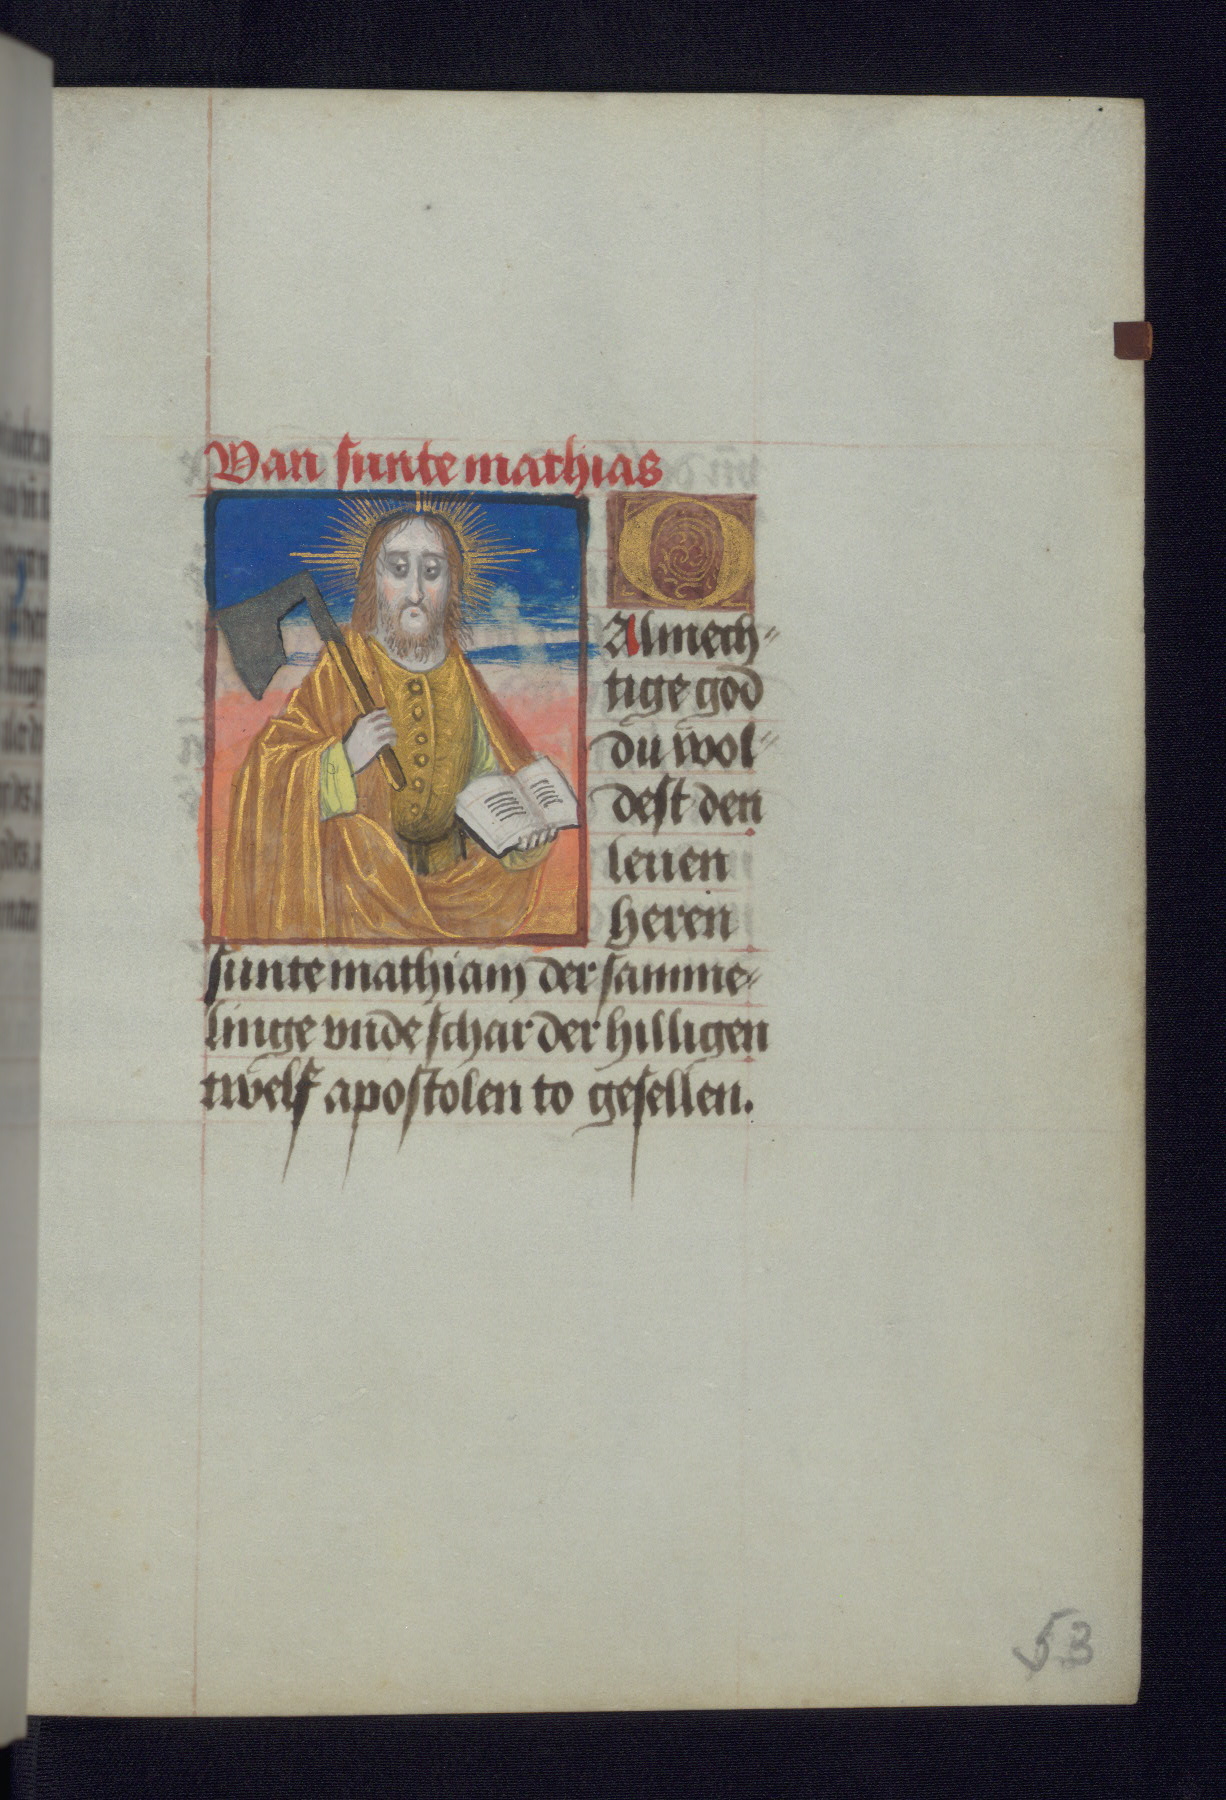 Van sunte mathias
O
Almech-
tige god
du wol-
dest den
leuen
heren
sunte mathiam der samme-
linge vnde schar der hilligen
twelf apostolen to gesellen.
53